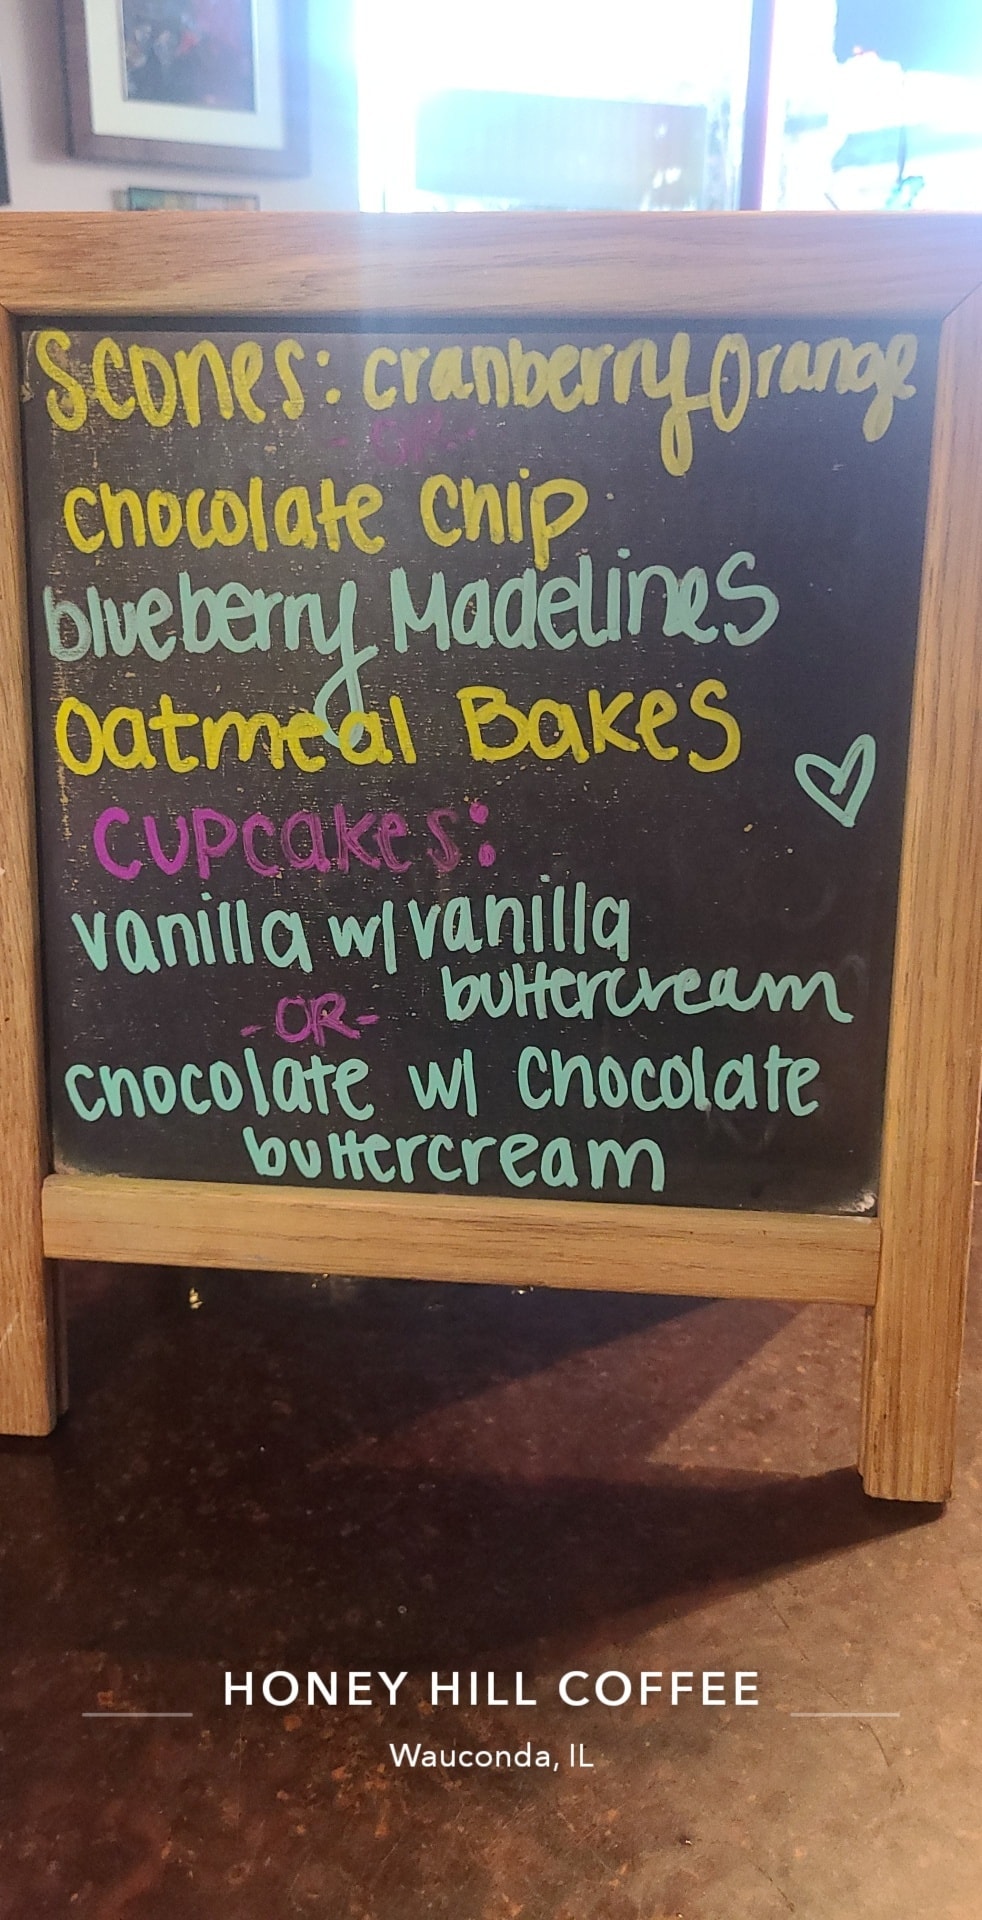 Scones: cranberry Orange
- OR -
chocolate Chip
blueberry Madelines
Oatmeal Bakes
Cupcakes:
vanilla w/ vanilla
buttercream
- OR -
chocolate w/ Chocolate
buttercream
HONEY HILL COFFEE
Wauconda, IL